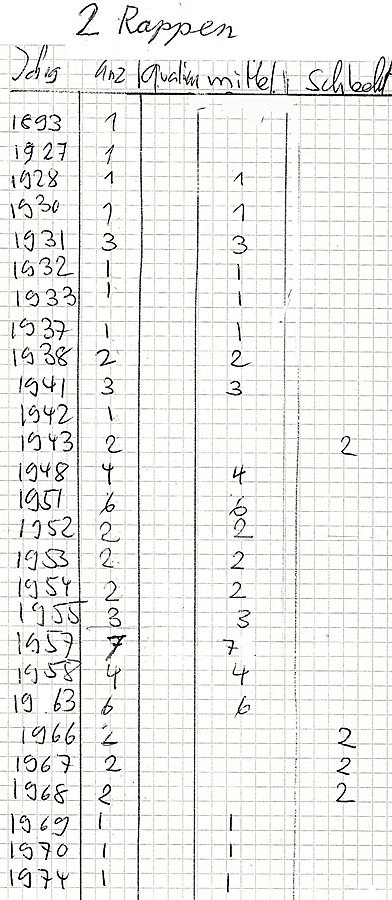 2 Rappen
Jahrg Anz Qualität mittel schlecht
1893 1
1927 1
1928 1 1
1930 1 1
1931 3 3
1932 1 1
1933 1 1
1937 1 1
1938 2 2
1941 3 3
1942 1
1943 2 2
1948 4 4
1951 6 6
1952 2 2
1953 2 2
1954 2 2
1955 3 3
1957 7 7
1958 4 4
1963 6 6
1966 2 2
1967 2 2
1968 2 2
1969 1 1
1970 1 1
1974 1 1